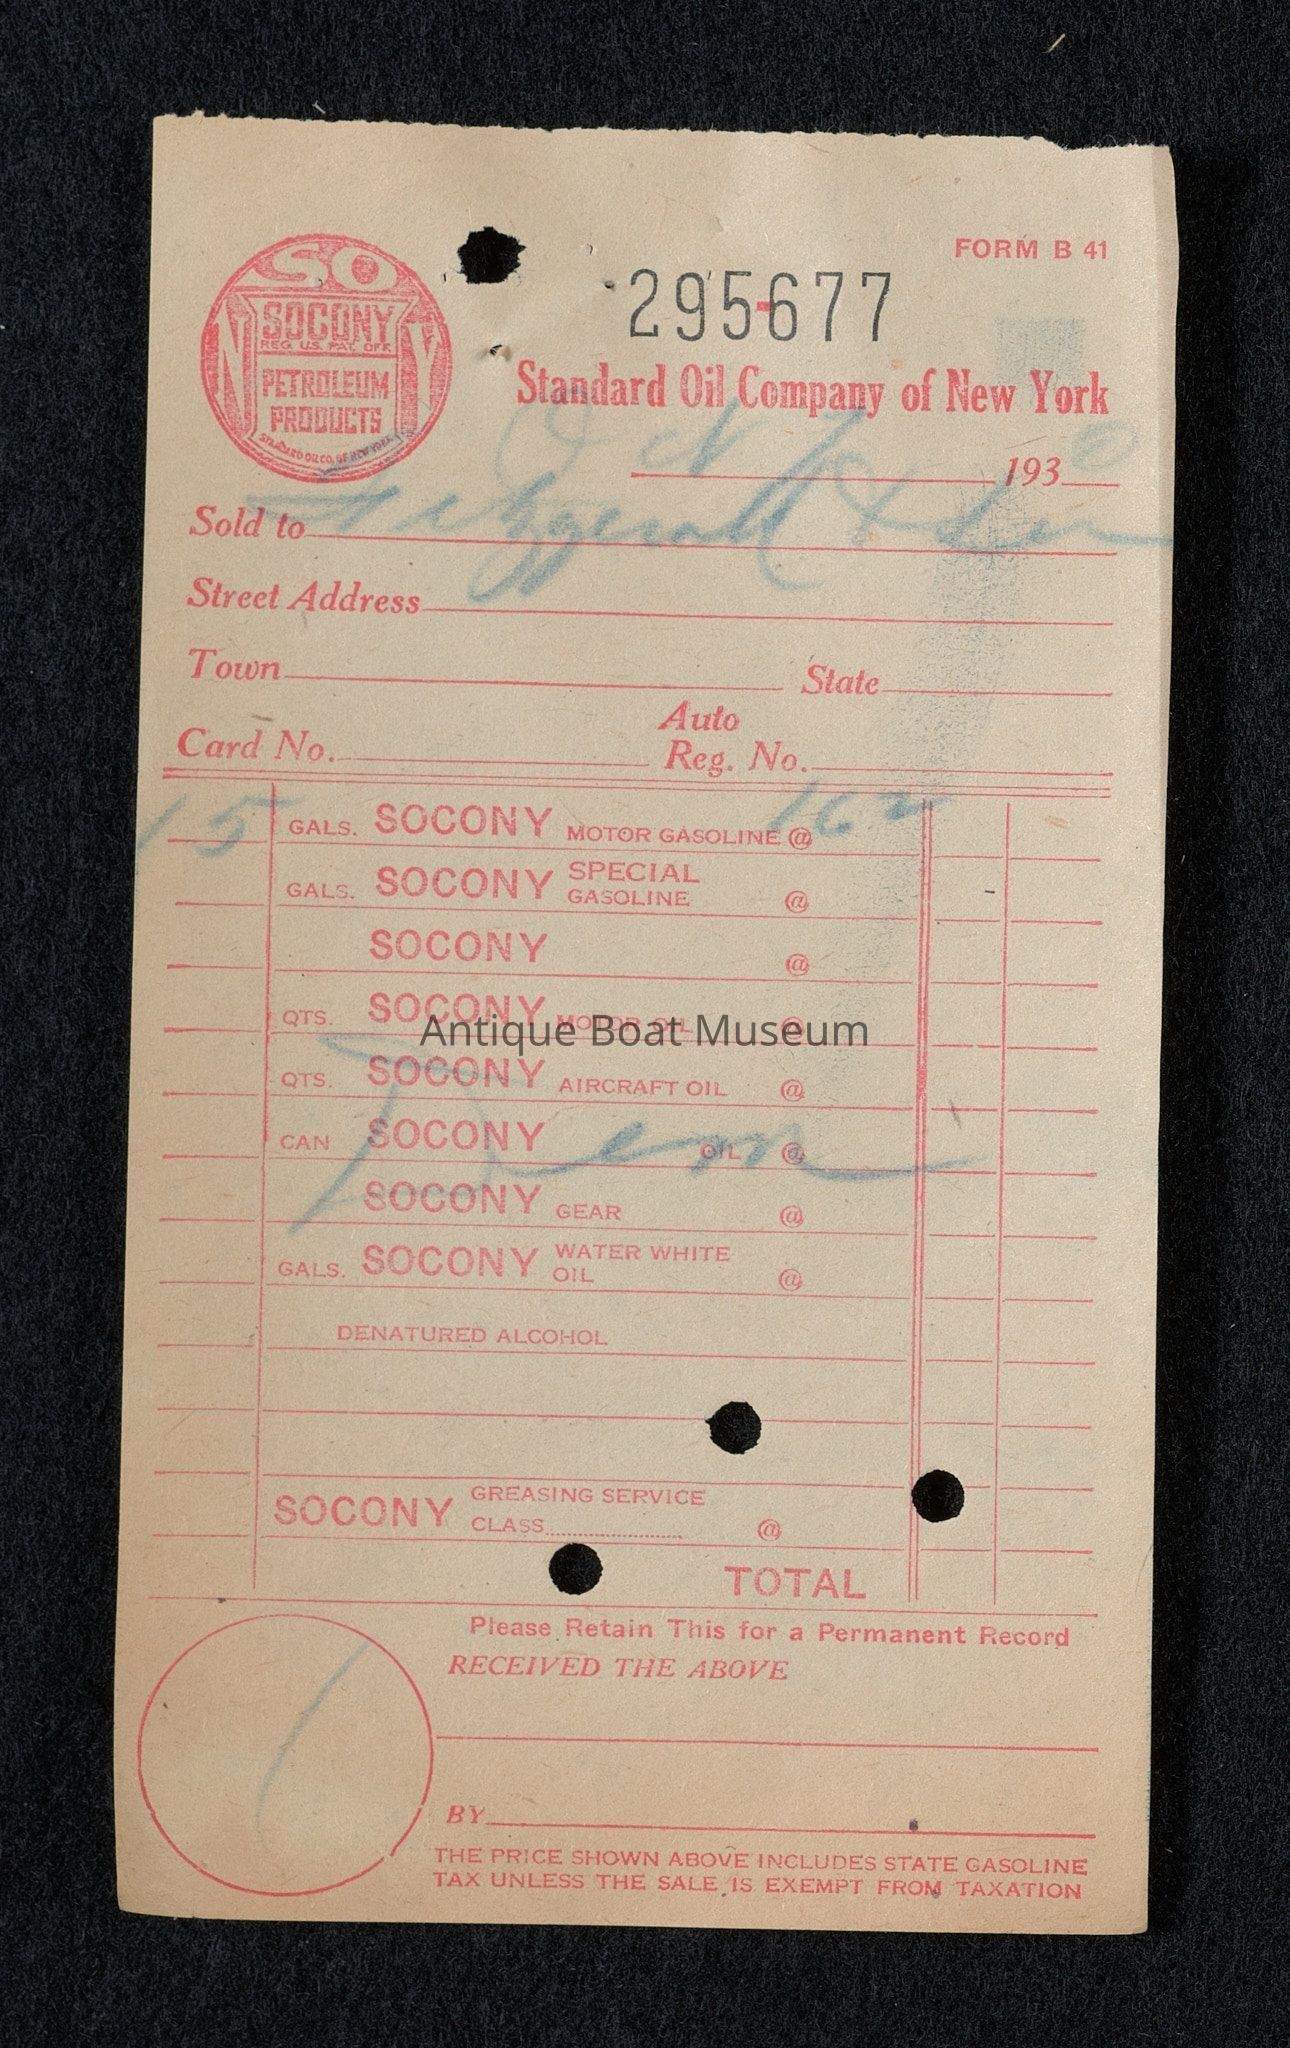 FORM B 41
SO
NY
SOCONY
REG. U.S. PAT. OFF.
PETROLEUM
PRODUCTS
STANDARD OIL CO. OF NEW YORK
295677
Standard Oil Company of New York
193
Sold to
Street Address
Town State
Auto
Card No. Reg. No.
15 GALS. SOCONY MOTOR GASOLINE @ 16
GALS. SOCONY SPECIAL GASOLINE @
SOCONY @
QTS. SOCONY MOTOR OIL @
Antique Boat Museum
QTS. SOCONY AIRCRAFT OIL @
CAN SOCONY OIL @
SOCONY GEAR @
GALS. SOCONY WATER WHITE OIL @
DENATURED ALCOHOL
SOCONY GREASING SERVICE
CLASS @
TOTAL
Please Retain This for a Permanent Record
RECEIVED THE ABOVE
BY
THE PRICE SHOWN ABOVE INCLUDES STATE GASOLINE
TAX UNLESS THE SALE IS EXEMPT FROM TAXATION